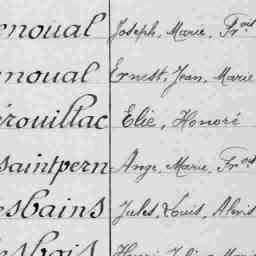 enoual Joseph, Marie, Frois
enoual Ernest, Jean, Marie
érouillac Elie, Honoré
saintpern Ange, Marie, Fros
esbains Jules, Louis, Alexis
esbois Henri, Jules, Marie